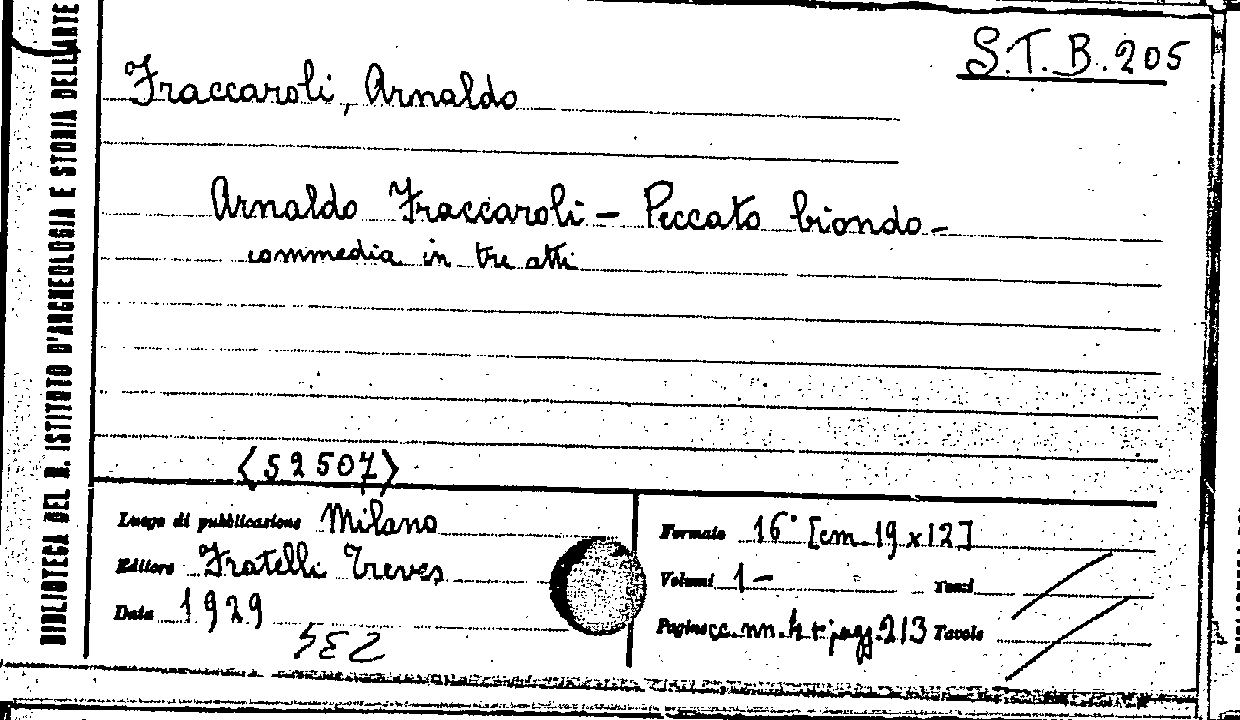 BIBLIOTECA DEL R. ISTITUTO D'ARCHEOLOGIA E STORIA DELL'ARTE
S.T.B. 205
Fraccaroli, Arnaldo
Arnaldo Fraccaroli - Peccato biondo -
commedia in tre atti
<52507>
Luogo di pubblicazione Milano
Editore Fratelli Treves
Data 1929
Formato 16° [cm. 19 x 12]
Volumi 1 - Tomi
Pagine cc. nn. 4 + pagg. 213 Tavole